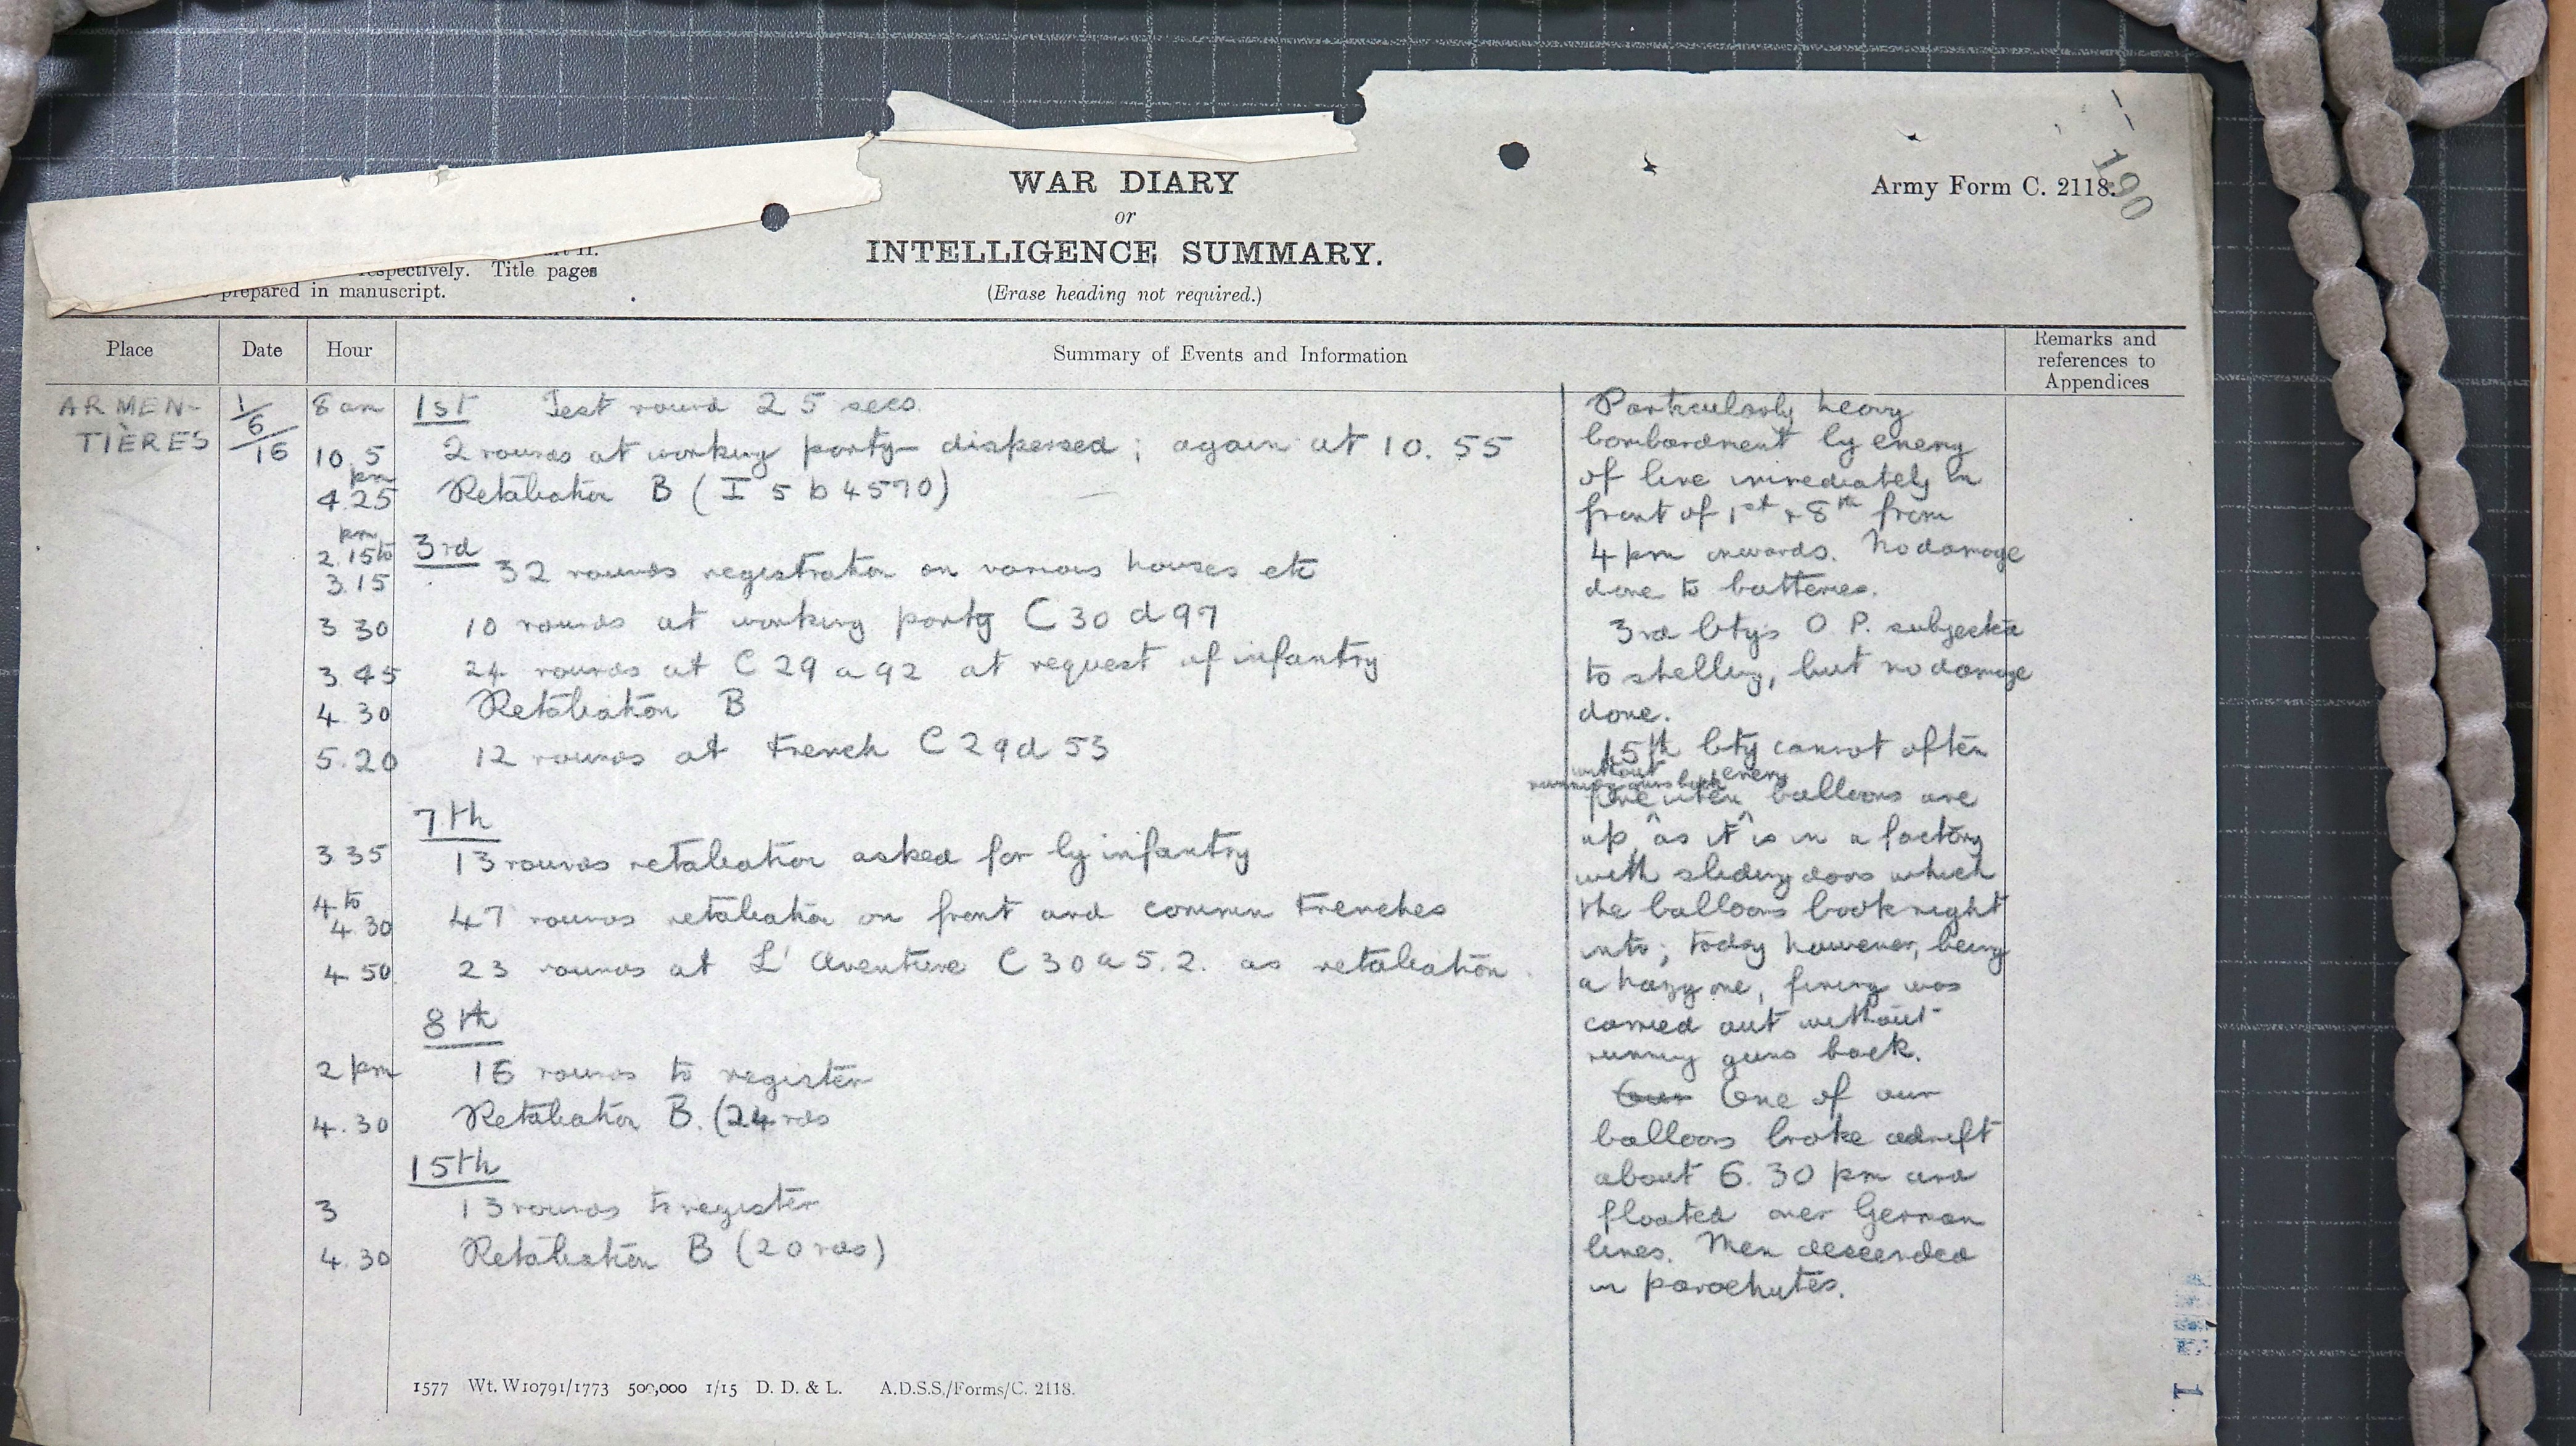 WAR DIARY
or
INTELLIGENCE SUMMARY.
(Erase heading not required.)
Army Form C. 2118.
190
II.
respectively. Title pages
prepared in manuscript.
Place Date Hour Summary of Events and Information Remarks and references to Appendices
ARMEN-
TIÈRES
1/6/16
8 am 1st Test round 25 secs.
10.5 2 rounds at working party – dispersed; again at 10.55
pm
4.25 Retaliation B (I 5 b 4570)
pm
2.15 to
3.15
3rd 32 rounds registration on various houses etc
3 30 10 rounds at working party C 30 d 97
3.45 24 rounds at C 29 a 92 at request of infantry
4.30 Retaliation B
5.20 12 rounds at trench C 29 d 53
7th
3 35 13 rounds retaliation asked for by infantry
4 to
4.30 47 rounds retaliation on front and commn trenches
4 50 23 rounds at L'Aventure C 30 a 5.2. as retaliation.
8th
2 pm 16 rounds to register
4.30 Retaliation B. (24 rds
15th
3 13 rounds to register
4.30 Retaliation B (20 rds)
Particularly heavy
bombardment by enemy
of line immediately in
front of 1st & 8th from
4 pm onwards. No damage
done to batteries.
3rd bty's O.P. subjected
to shelling, but no damage
done.
15th bty cannot often
without
running guns back enemy
fire when balloons are
up, as it is in a factory
with sliding doors which
the balloons look right
into; today however, being
a hazy one, firing was
carried out without
running guns back.
Our One of our
balloons broke adrift
about 6.30 pm and
floated over German
lines. Men descended
in parachutes.
1577 Wt. W10791/1773 500,000 1/15 D. D. & L. A.D.S.S./Forms/C. 2118.
1